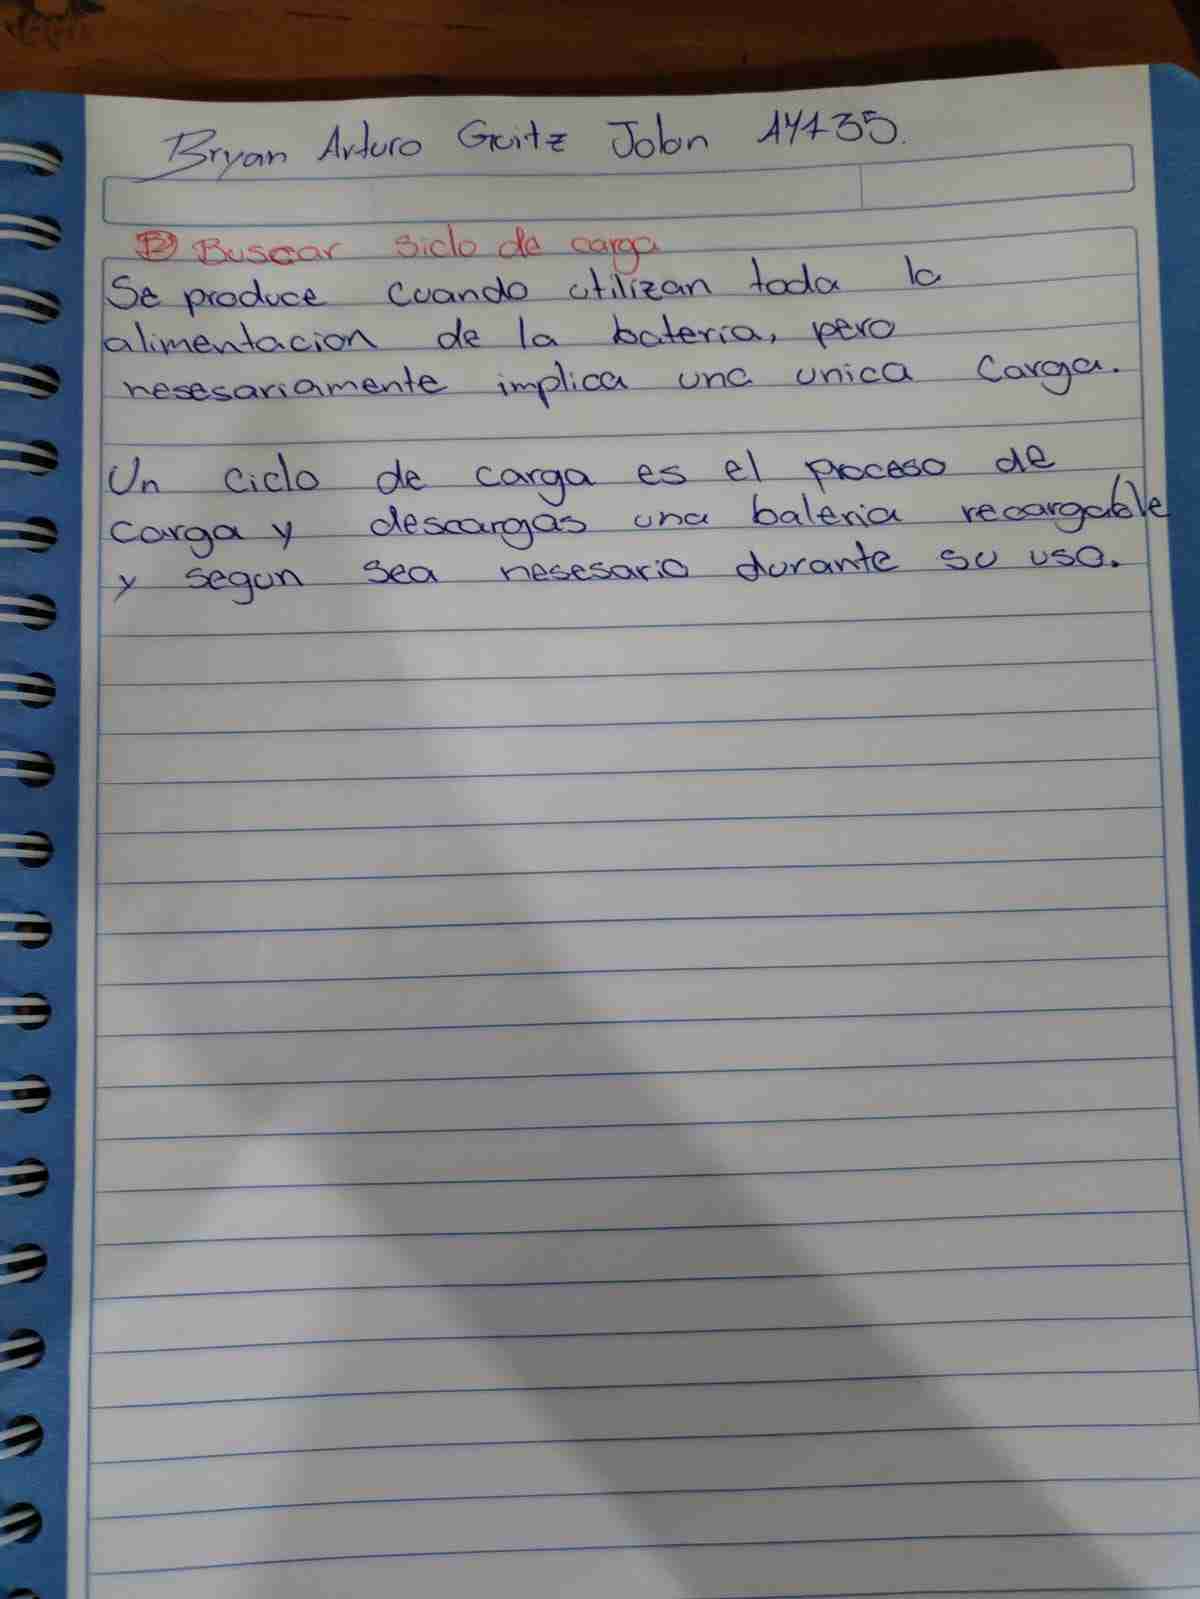 Bryan Arturo Guitz Jolon 14435.
2) Buscar siclo de carga
Se produce cuando utilizan toda la
alimentacion de la bateria, pero
nesesariamente implica una unica carga.
Un ciclo de carga es el proceso de
carga y descargas una bateria recargable
y segun sea nesesario durante su uso.